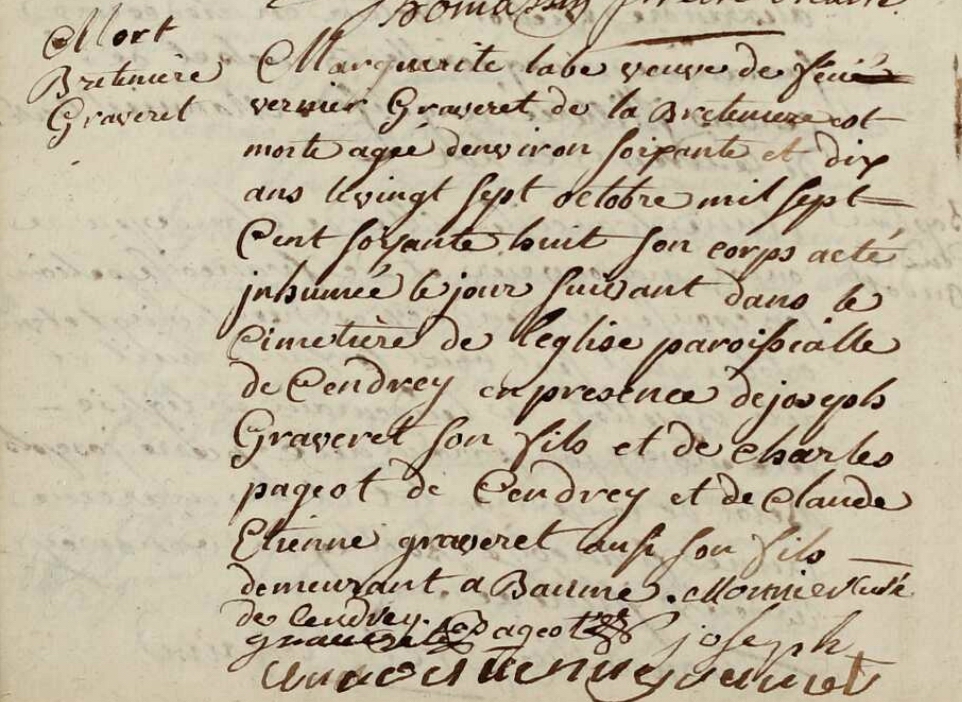 Thomassin
Mort
Bretenière
Graveret
Marguerite labe veuve de
vernier Graveret de la Bretenieze est
morte agée denviron soixante et dix
ans levingt sept octobre mil sept
Cent soixante huit son corps acté
jnhumée le jour suivant dans le
Cimetière de leglise paroissialle
de Cendrey en presence de joseph
Graveret son fils et de charles
pageot de Cendrey et de Claude
Etienne graveret aussi son fils
demeurant a Baume. Monnier Curé
de Cendrey.
graveret pageot joseph